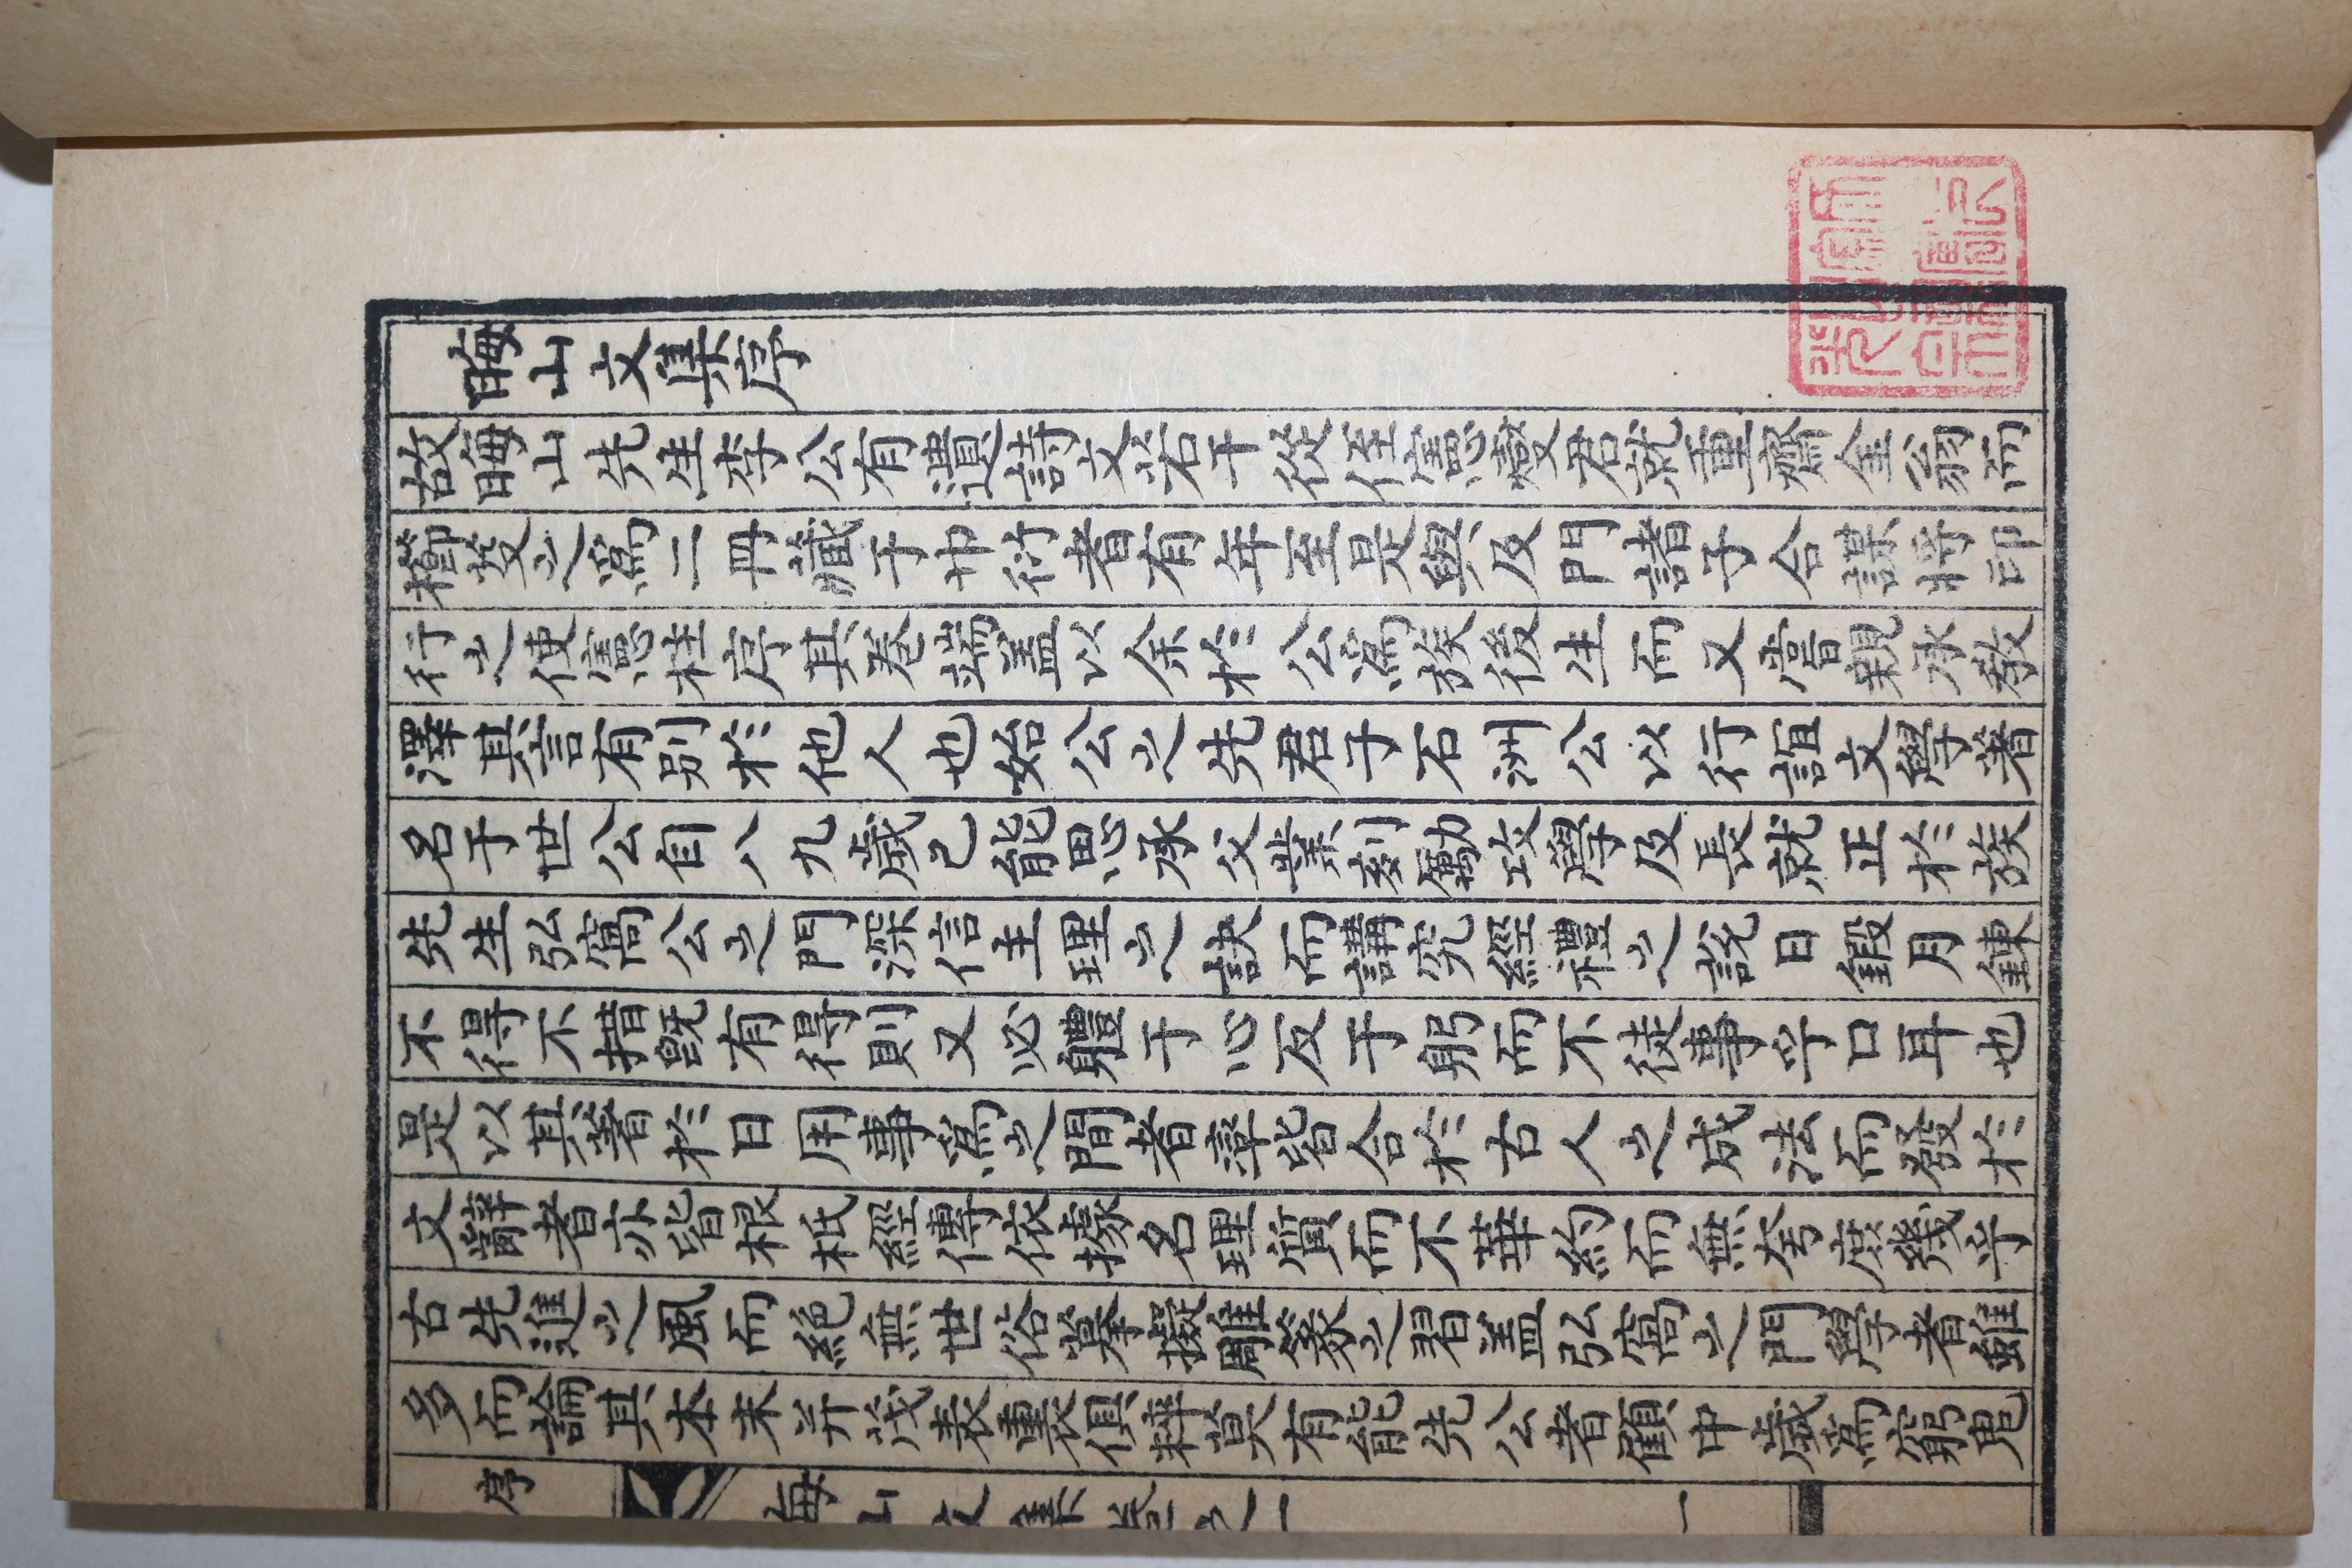 晦山文集序
故晦山先生李公有遺詩文若干從侄憲燮君就重齋金翁而
櫛發之爲二冊藏于巾衍者有年至是與及門諸子合謀將印
行之使憲柱序其卷端盖以余於公爲族後生而又嘗親承教
澤其言有別於他人也始公之先君子石洲公以行誼文學著
名于世公自八九歲已能思承父業刻勵攻學及長就正於族
先生弘窩公之門深信主理之訣而講究經禮之說日鍛月鍊
不得不措旣有得則又必體于心反于躬而不徒事乎口耳也
是以其著於日用事爲之間者率皆合於古人之成法而發於
文辭者亦皆根柢經傳依據名理質而不華約而無夸庶幾乎
古先進之風而絶無世俗摹擬雕篆之習盖弘窩之門學者雖
多而論其本末并茂表裏俱粹莫有能先公者顧中歲爲窮鬼
序 晦山文集卷之一 一